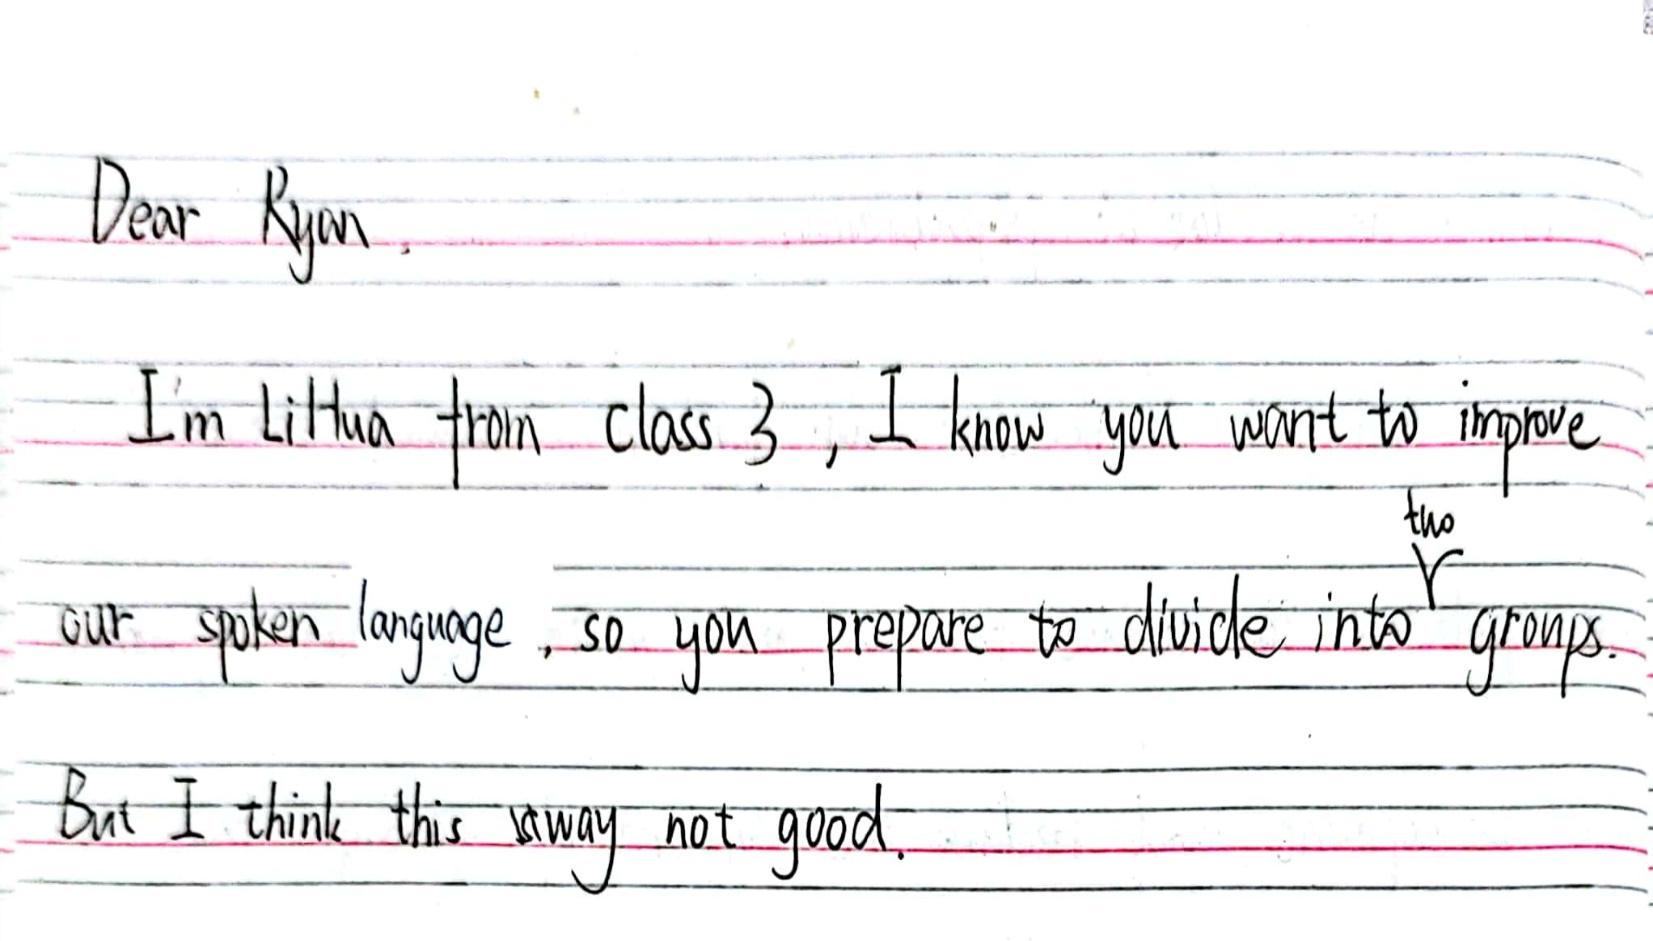 Dear Ryan,
I'm LiHua from class 3, I know you want to improve
our spoken language, so you prepare to divide into two groups.
But I think this way not good.